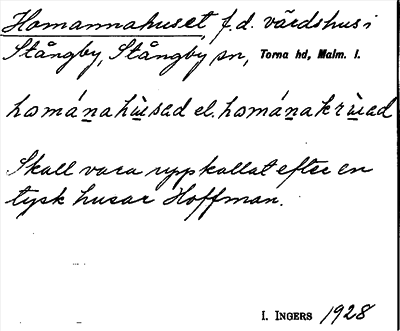 Homannahuset, f.d. värdshus i
Stångby, Stångby sn, Torna hd, Malm. l.
hománahùsad el. hománakrùad
Skall vara uppkallat efter en
tysk husar Hoffman.
I. INGERS 1928